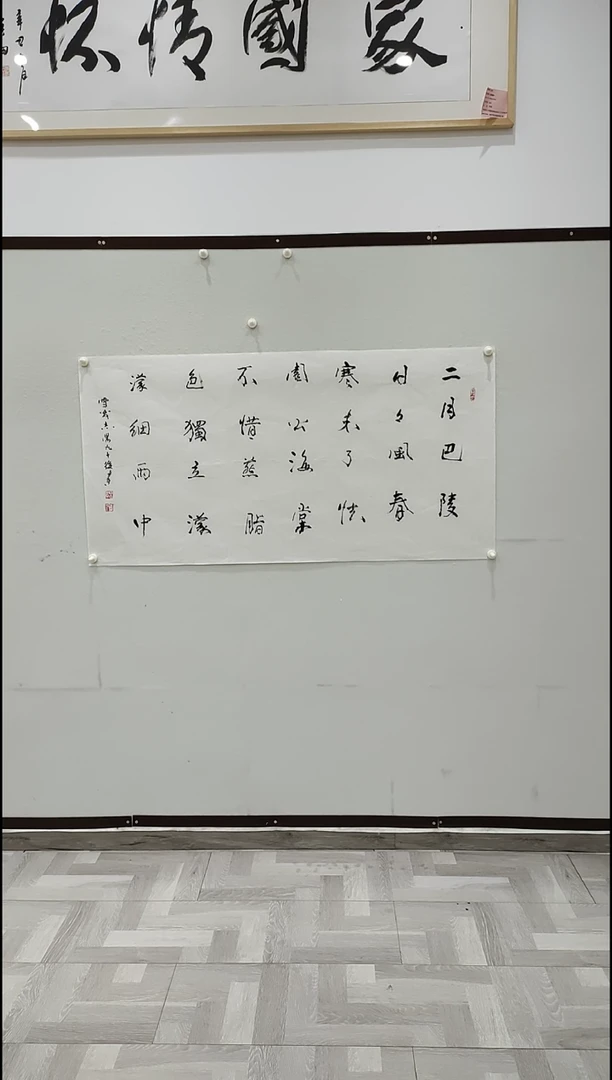 家國情怀
辛丑
二月巴陵
日々風春
寒未了怯
園公海棠
不惜燕脂
色獨立濛
濛細雨中